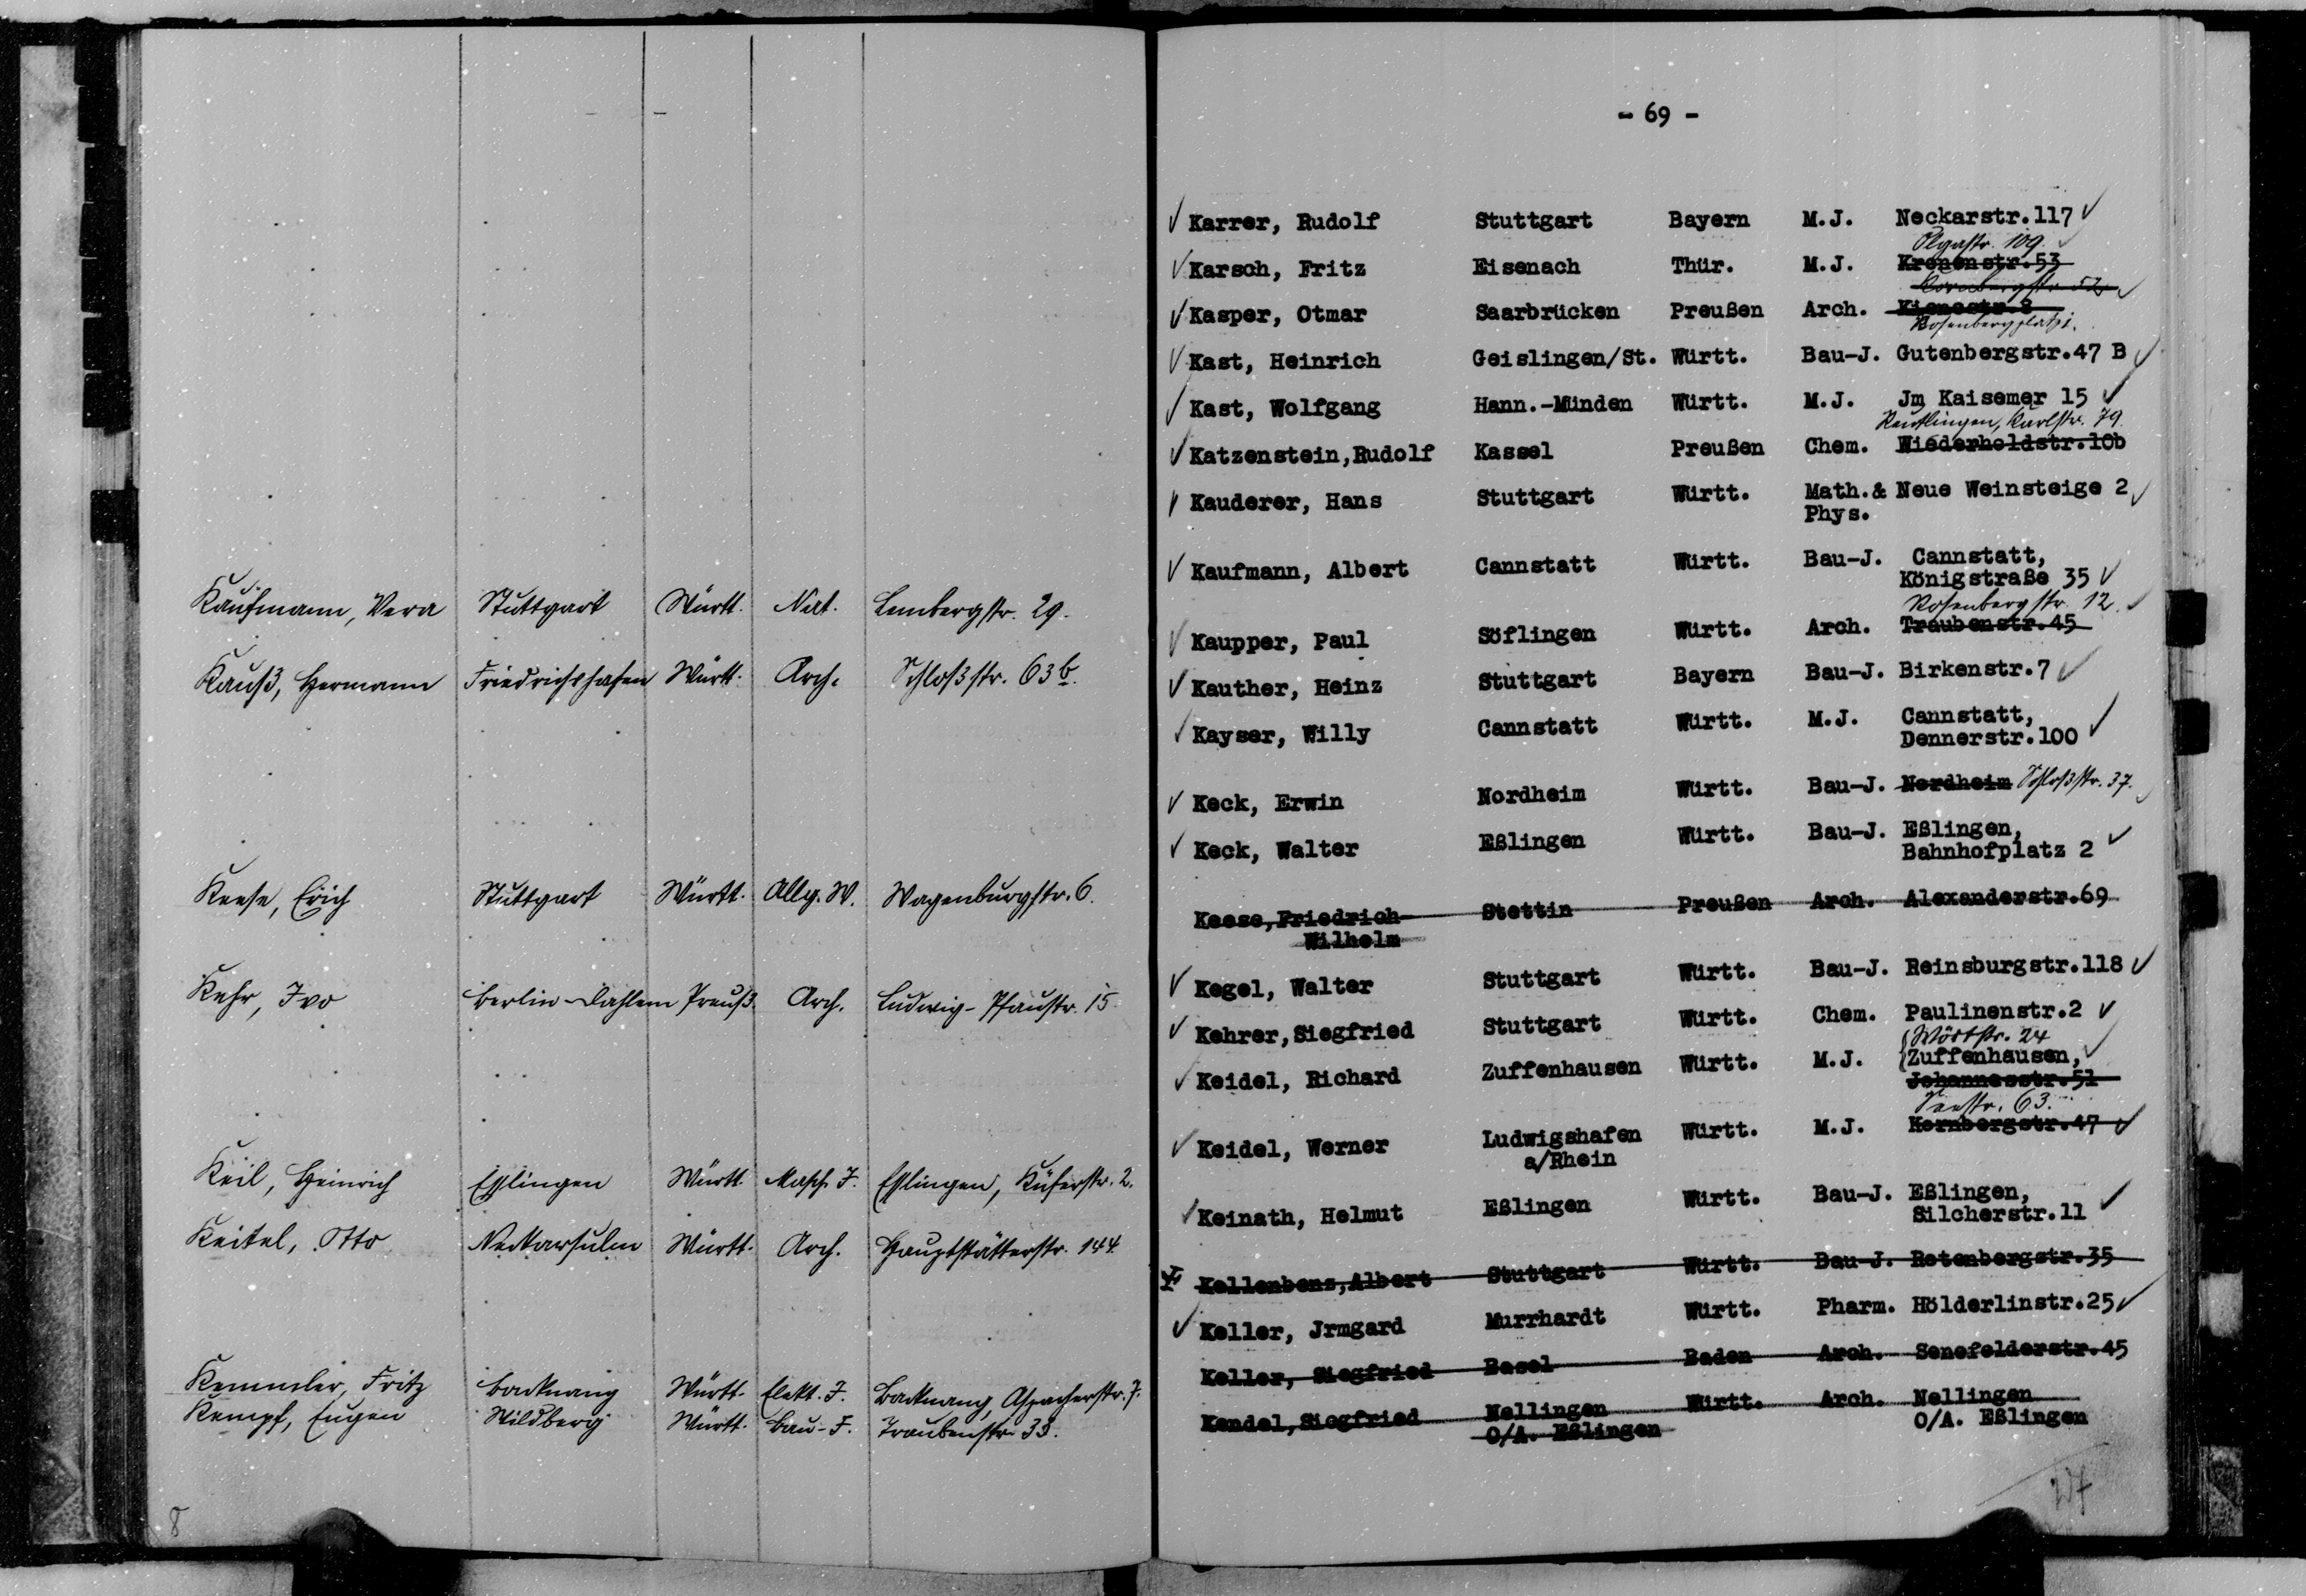 Kaufmann, Vera Stuttgart Württ. Nat. Lembergstr. 29.
Kauß, Hermann Friedrichshafen Württ. Arch. Schloßstr. 63b.
Keese, Erich Stuttgart Württ. Allg. W. Wagenburgstr. 6.
Kehr, Ivo Berlin-Dahlem Preuß. Arch. Ludwig-Pfaustr. 15
Keil, Heinrich Esslingen Württ. Masch. J. Esslingen, Küferstr. 2.
Keitel, Otto Neckarsulm Württ. Arch. Hauptstätterstr. 144.
Kemmler, Fritz Backnang Württ. Elekt. J. Backnang, Aspacherstr. 7.
Kempf, Eugen Wildberg Württ. Bau-J. Traubenstr. 33.
8
- 69 -
Karrer, Rudolf Stuttgart Bayern M.J. Neckarstr.117
Olgastr. 109.
Karsch, Fritz Eisenach Thür. M.J. Kronenstr.53
Kasper, Otmar Saarbrücken Preußen Arch. Kienestr.8
Rosenbergplatz 1.
Kast, Heinrich Geislingen/St. Württ. Bau-J. Gutenbergstr.47 B
Kast, Wolfgang Hann.-Münden Württ. M.J. Jm Kaisemer 15
Reutlingen, Karlstr. 79.
Katzenstein,Rudolf Kassel Preußen Chem. Wiederholdstr.10b
Kauderer, Hans Stuttgart Württ. Math.& Neue Weinsteige 2
Phys.
Kaufmann, Albert Cannstatt Württ. Bau-J. Cannstatt,
Königstraße 35
Rosenbergstr. 12.
Kaupper, Paul Söflingen Württ. Arch. Traubenstr.45
Kauther, Heinz Stuttgart Bayern Bau-J. Birkenstr.7
Kayser, Willy Cannstatt Württ. M.J. Cannstatt,
Dennerstr.100
Keck, Erwin Nordheim Württ. Bau-J. Nordheim Schloßstr. 37.
Keck, Walter Eßlingen Württ. Bau-J. Eßlingen,
Bahnhofplatz 2
Keese,Friedrich Stettin Preußen Arch. Alexanderstr.69
Wilhelm
Kegel, Walter Stuttgart Württ. Bau-J. Reinsburgstr.118
Kehrer,Siegfried Stuttgart Württ. Chem. Paulinenstr.2
Wörthstr. 24
Keidel, Richard Zuffenhausen Württ. M.J. Zuffenhausen,
Johannesstr.51
Seestr. 63.
Keidel, Werner Ludwigshafen Württ. M.J. Kornbergstr.47
a/Rhein
Keinath, Helmut Eßlingen Württ. Bau-J. Eßlingen,
Silcherstr.11
Kellenbenz,Albert Stuttgart Württ. Bau-J. Rotenbergstr.35
Keller, Jrmgard Murrhardt Württ. Pharm. Hölderlinstr.25
Keller, Siegfried Basel Baden Arch. Senefelderstr.45
Kendel,Siegfried Nellingen Württ. Arch. Nellingen
O/A. Eßlingen O/A. Eßlingen